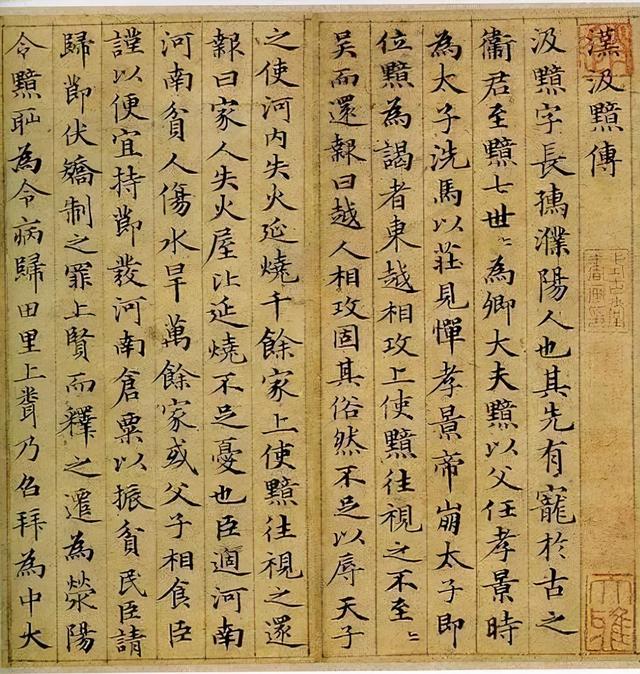 漢汲黯傳
汲黯字長孺濮陽人也其先有寵於古之
衛君至黯七世〻為卿大夫黯以父任孝景時
為太子洗馬以莊見憚孝景帝崩太子即
位黯為謁者東越相攻上使黯往視之不至〻
吳而還報曰越人相攻固其俗然不足以辱天子
之使河内失火延燒千餘家上使黯往視之還
報曰家人失火屋比延燒不足憂也臣適河南
河南貧人傷水旱萬餘家或父子相食臣
謹以便宜持節發河南倉粟以振貧民臣請
歸節伏矯制之罪上賢而釋之遷為滎陽
令黯恥為令病歸田里上聞乃召拜為中大
大雅